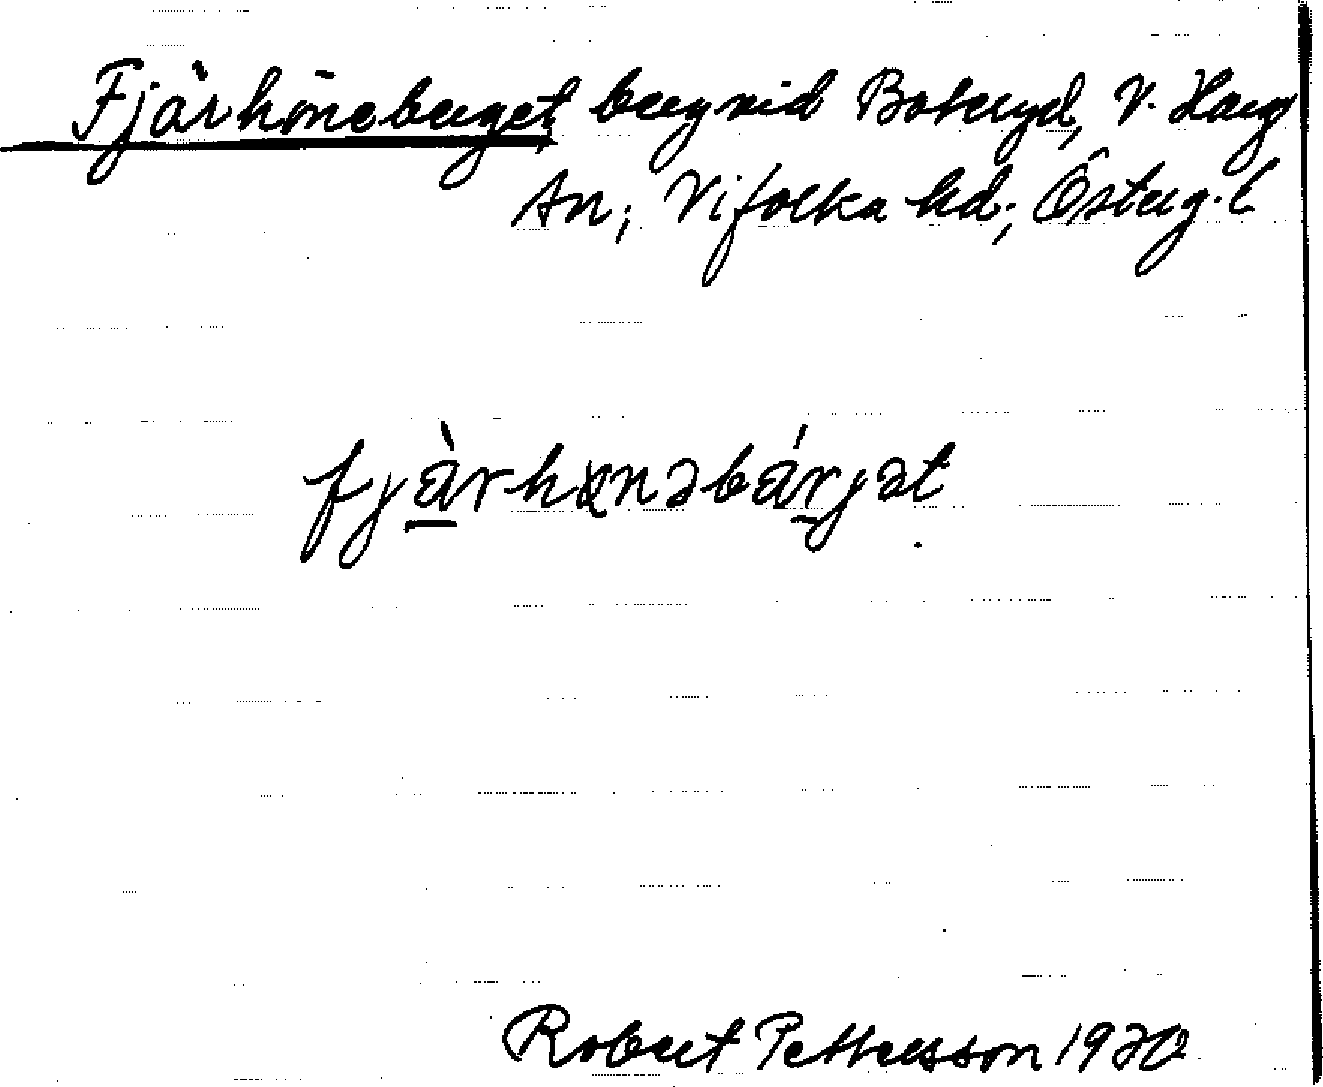 Fjärhöneberget berg vid Boteryd, V. Harg
An; Vifolka hd; Österg.l
fjàrhɷnəbárjət
Robert Pettersson 1930